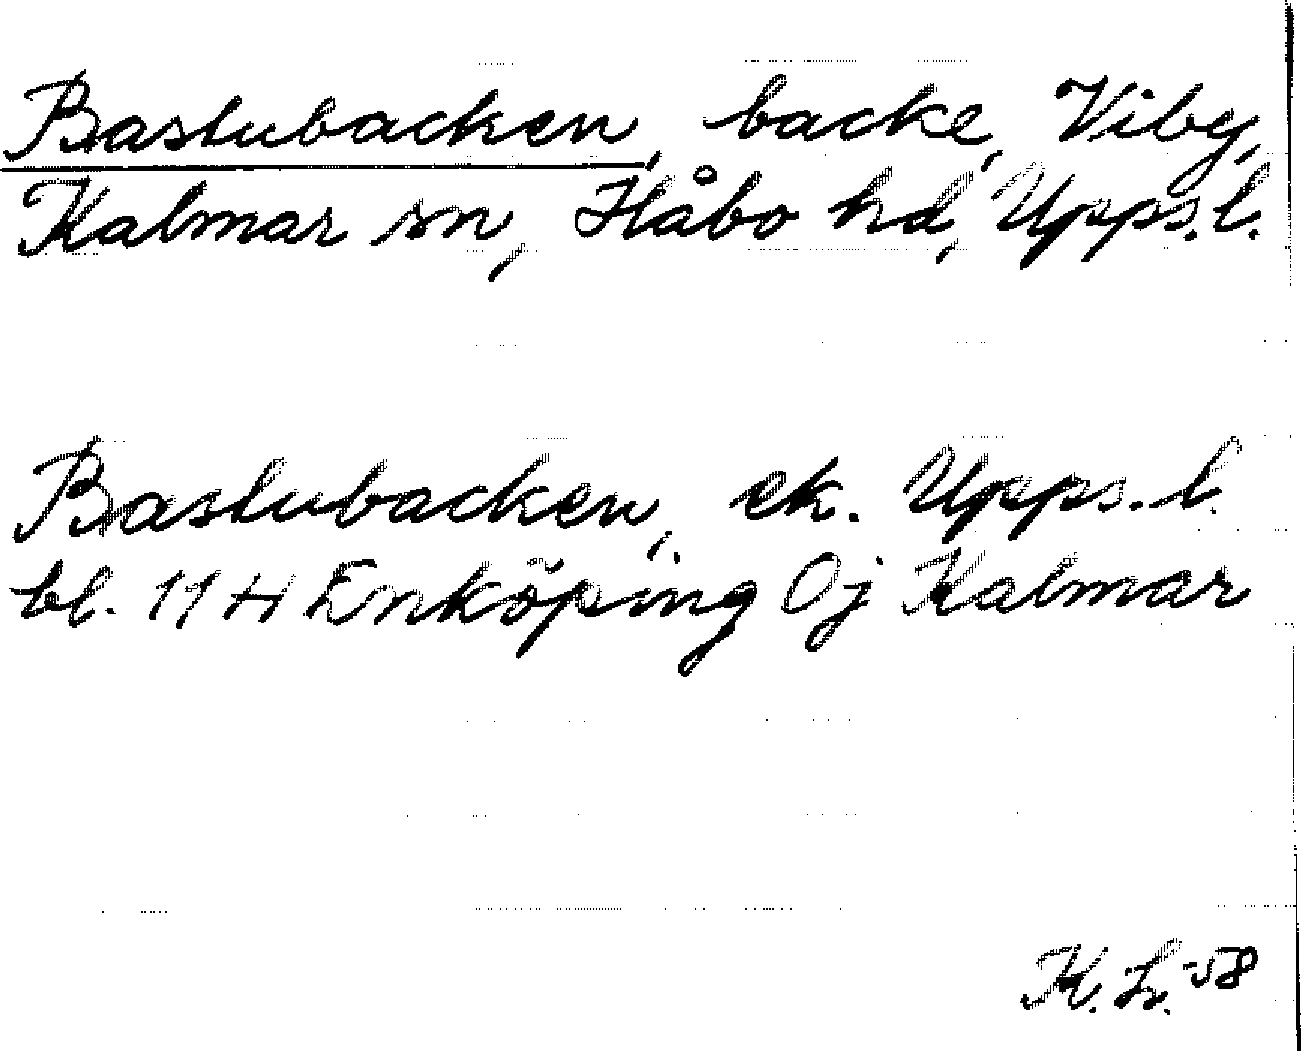 Bastubacken, backe, Viby,
Kalmar sn, Håbo hd, Upps.l.
Bastubacken, ek. Upps.l.
bl. 11 H Enköping Oj Kalmar
K. L. -58